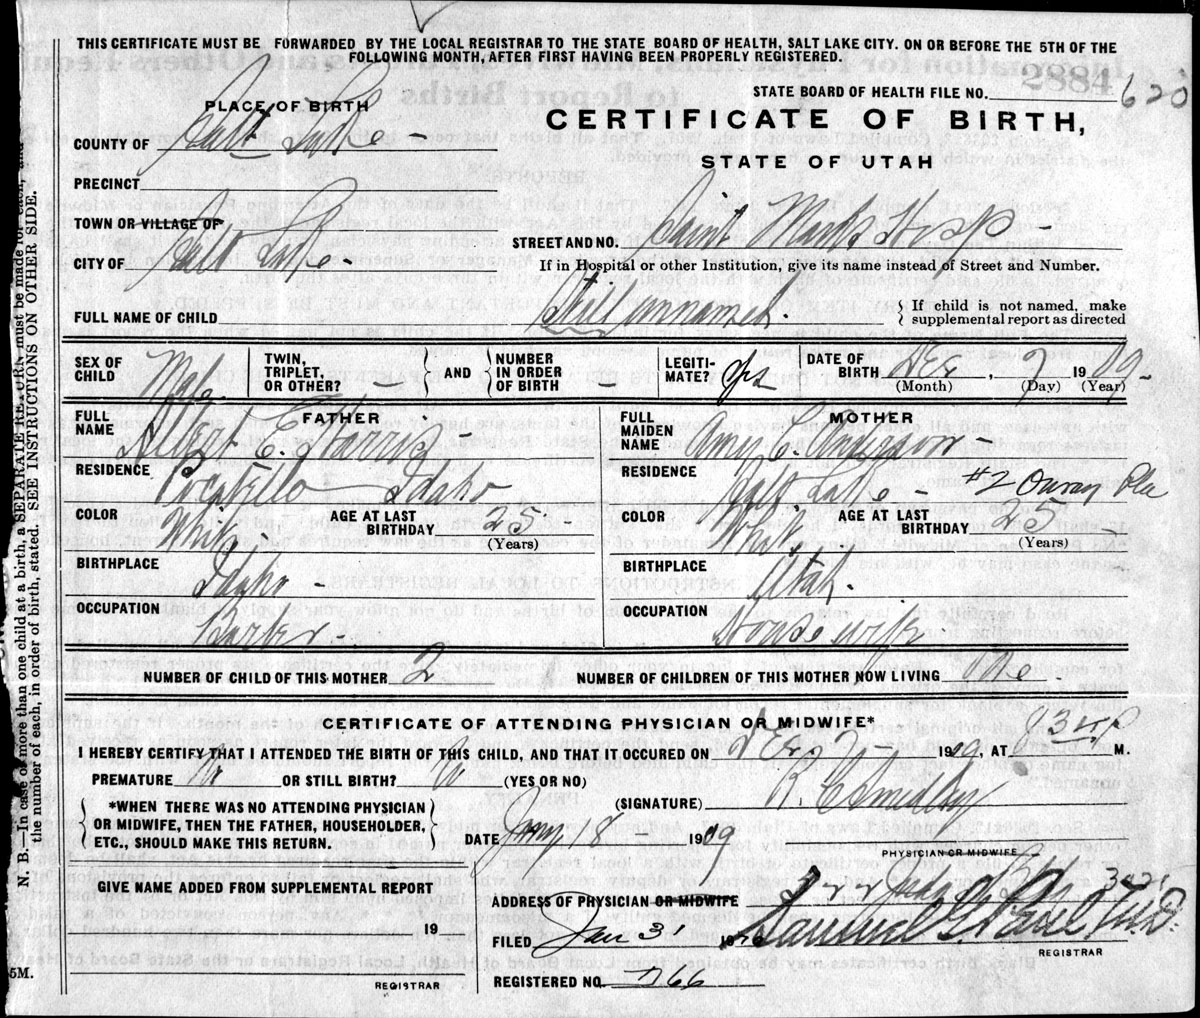 THIS CERTIFICATE MUST BE FORWARDED BY THE LOCAL REGISTRAR TO THE STATE BOARD OF HEALTH, SALT LAKE CITY. ON OR BEFORE THE 5TH OF THE
FOLLOWING MONTH, AFTER FIRST HAVING BEEN PROPERLY REGISTERED.
STATE BOARD OF HEALTH FILE NO. 620
PLACE OF BIRTH
CERTIFICATE OF BIRTH,
COUNTY OF Salt Lake -
STATE OF UTAH
PRECINCT
TOWN OR VILLAGE OF
STREET AND NO. Saint Marks Hosp -
CITY OF Salt Lake -
If in Hospital or other Institution, give its name instead of Street and Number.
FULL NAME OF CHILD Still unnamed.
{ If child is not named, make
supplemental report as directed
SEX OF CHILD Male.
TWIN, TRIPLET, OR OTHER? -
} AND {
NUMBER IN ORDER OF BIRTH -
LEGITIMATE? yes
DATE OF BIRTH DEc, 7 1909-
(Month) (Day) (Year)
FULL NAME FATHER
E. Harris -
FULL MAIDEN NAME MOTHER
Amy C. Anderson -
RESIDENCE
Pocatello - Idaho
RESIDENCE
Salt Lake - #2 Ouray Plce
COLOR White
AGE AT LAST BIRTHDAY 25 -
(Years)
COLOR White
AGE AT LAST BIRTHDAY 25 -
(Years)
BIRTHPLACE
Idaho -
BIRTHPLACE
Utah.
OCCUPATION
OCCUPATION
Housewife
NUMBER OF CHILD OF THIS MOTHER 2
NUMBER OF CHILDREN OF THIS MOTHER NOW LIVING One -
CERTIFICATE OF ATTENDING PHYSICIAN OR MIDWIFE*
I HEREBY CERTIFY THAT I ATTENDED THE BIRTH OF THIS CHILD, AND THAT IT OCCURED ON DEc 1909, AT M.
PREMATURE No OR STILL BIRTH? No (YES OR NO)
(SIGNATURE) R. C. Smedley
{ *WHEN THERE WAS NO ATTENDING PHYSICIAN
OR MIDWIFE, THEN THE FATHER, HOUSEHOLDER,
ETC., SHOULD MAKE THIS RETURN. }
DATE Jany 18 1909
PHYSICIAN OR MIDWIFE
GIVE NAME ADDED FROM SUPPLEMENTAL REPORT
19
REGISTRAR
ADDRESS OF PHYSICIAN OR MIDWIFE
FILED Jan 31 19
REGISTRAR
REGISTERED NO. 766
N. B.—In case of more than one child at a birth, a SEPARATE RETURN must be made for each, and
the number of each, in order of birth, stated. SEE INSTRUCTIONS ON OTHER SIDE.
5M.